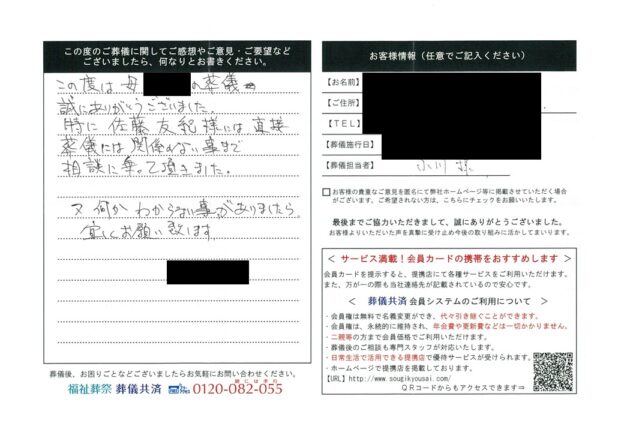 この度のご葬儀に関してご感想やご意見・ご要望など
ございましたら、何なりとお書きください。
この度は母 の葬儀
誠にありがとうございました。
特に佐藤友紀様には直接
葬儀には関係のない事まで
相談に乗って頂きました。
又何かわからない事がありましたら
宜しくお願い致します
葬儀後、お困りごとなどございましたらお気軽にお問い合わせください。
福祉葬祭 葬儀共済 0120-082-055
お客様情報（任意でご記入ください）
【お名前】
【ご住所】
【TEL】
【葬儀施行日】
【葬儀担当者】 小川 様
お客様の貴重なご意見を匿名にて弊社ホームページ等に掲載させていただく場合
がございます。ご希望されない方は、こちらにチェックをお願いいたします。
最後までご協力いただきまして、誠にありがとうございました。
お客様よりいただいた声を真摯に受け止め今後の取り組みに活かしてまいります。
＜ サービス満載！会員カードの携帯をおすすめします ＞
会員カードを提示すると、提携店にて各種サービスをご利用いただけます。
また、万が一の際も当社連絡先が記載されているので安心です。
＜ 葬儀共済 会員システムのご利用について ＞
・会員権は無料で名義変更ができ、代々引き継ぐことができます。
・会員権は、永続的に維持され、年会費や更新費などは一切かかりません。
・二親等の方まで会員価格でご利用いただけます。
・葬儀後のご相談も専門スタッフが対応いたします。
・日常生活で活用できる提携店で優待サービスが受けられます。
・ホームページで提携店を掲載しております。
【URL】http://www.sougikyousai.com/
QRコードからもアクセスできます⇒